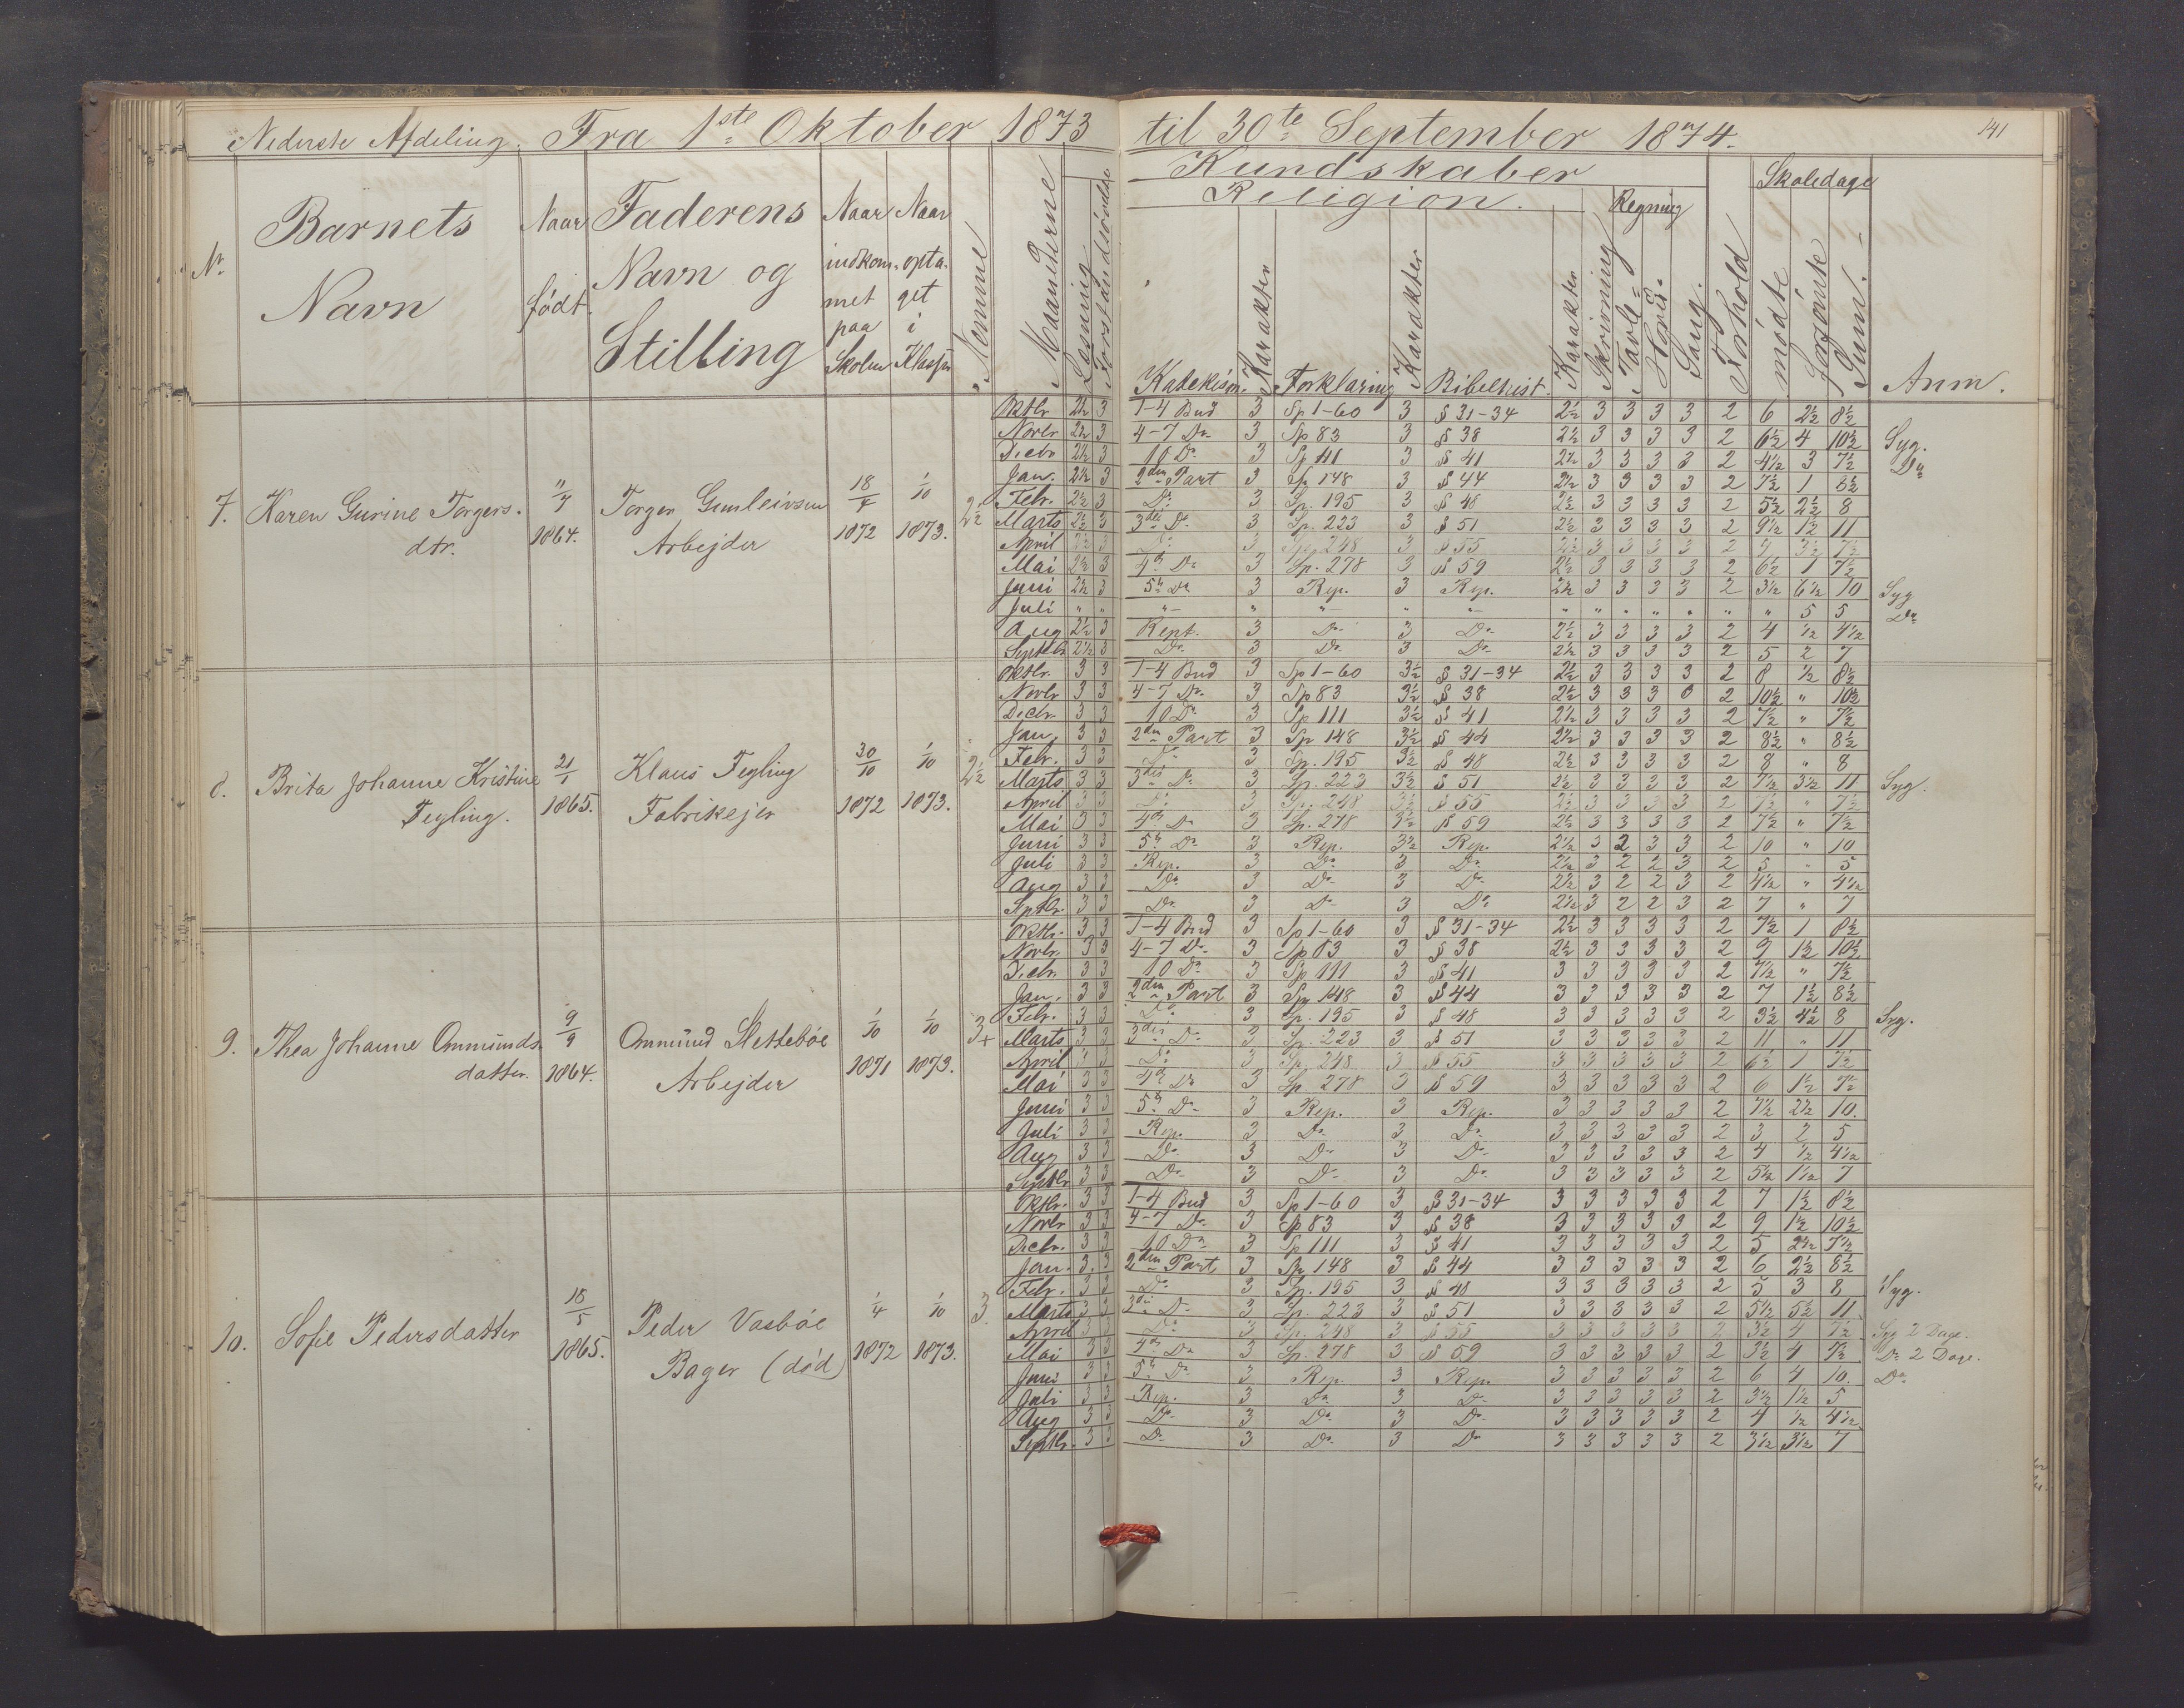 Nederste Afdeling. Fra 1ste Oktober 1873 til 30te September 1874. 141
Kundskaber Skoledage
Religion. Regning
Nr. Barnets Navn Naar født. Faderens Navn og Stilling Naar indkommet paa Skolen Naar optaget i Klassen Nemme Maanederne Læsning Forstandsøvelse Katekism. Karakter Forklaring Karakter Bibelhist. Karakter Skrivning Tavle= Hoved. Sang. Forhold mødte forsømte Sum. Anm.
7. Karen Gurine Torgers. dtr. 1864. Torger Gunleivsen Arbejder 18/4 1872 1/10 1873. 2½
Oktbr. 2½ 3 1-4 Bud 3 Sp 1-60 3 § 31-34 2½ 3 3 3 3 2 6 2½ 8½
Novbr 2½ 3 4-7 Do 3 Sp 83 3 § 38 2½ 3 3 3 3 2 6½ 4 10½ Syg.
Decbr 2½ 3 10 Do 3 Sp 111 3 § 41 2½ 3 3 3 3 2 4½ 3 7½ Do
Jan. 2½ 3 2den Part 3 Sp 148 3 § 44 2½ 3 3 3 3 2 7½ 1 8½
Febr. 2½ 3 Do 3 Sp. 195 3 § 48 2½ 3 3 3 3 2 5½ 2½ 8
Marts 2½ 3 3die Do 3 Sp. 223 3 § 51 2½ 3 3 3 3 2 9½ 1½ 11
April 2½ 3 Do 3 Sp. 248 3 § 55 2½ 3 3 3 3 2 3½ 7½
Mai 2½ 3 4de Do 3 Sp. 278 3 § 59 2½ 3 3 3 3 2 6½ 1 7½
Juni 2½ 3 5te Do 3 Rep. 3 Rep. 2½ 3 3 3 3 2 3½ 6½ 10 Syg
Juli " " " " " " " " " " " " " " 5 5 Do
Aug 2½ 3 Rept. 3 Do 3 Do 2½ 3 3 3 3 2 4 ½ 4½
Septbr 2½ 3 Do 3 Do 3 Do 2½ 3 3 3 3 2 5 2 7
8. Brita Johanne Kristine Tegling. 21/1 1865. Klaus Tegling Fabrikejer 30/10 1872 1/10 1873. 2½
Oktbr. 3 3 1-4 Bud 3 Sp 1-60 3½ § 31-34 2½ 3 3 3 3 2 8 ½ 8½
Novbr 3 3 4-7 Do 3 Sp 83 3½ § 38 2½ 3 3 3 3 2 10½ " 10½
Decbr. 3 3 10 Do 3 Sp 111 3½ § 41 2½ 3 3 3 3 2 7½ " 7½
Jan. 3 3 2den Part 3 Sp 148 3½ § 44 2½ 3 3 3 3 2 8½ " 8½
Febr. 3 3 Do 3 Sp. 195 3½ § 48 2½ 3 3 3 3 2 8 " 8
Marts 3 3 3die Do 3 Sp. 223 3½ § 51 2½ 3 3 3 3 2 7½ 3½ 11 Syg.
April 3 3 Do 3 Sp. 248 3½ § 55 2½ 3 3 3 3 2 7½ " 7½
Mai 3 3 4de Do 3 Sp. 278 3½ § 59 2½ 3 3 3 3 2 7½ " 7½
Juni 3 3 5te Do 3 Rep. 3½ Rep. 2½ 3 2 3 3 2 10 " 10
Juli 3 3 Rep. 3 Do 3 Do 2½ 3 2 2 3 2 5 " 5
Aug 3 3 Do 3 Do 3 Do 2½ 3 2 2 3 2 4½ " 4½
Septbr. 3 3 Do 3 Do 3 Do 2½ 3 2 2 3 2 7 " 7
9. Thea Johanne Ommunds. datter. 9/9 1864. Ommund Slettebøe Arbejder 1/10 1871 1/10 1873. 3+
Oktbr. 3 3 1-4 Bud 3 Sp 1-60 3 § 31-34 2½ 3 3 3 3 2 7½ 1 8½
Novbr. 3 3 4-7 Do 3 Sp 83 3 § 38 2½ 3 3 3 3 2 9 1½ 10½
Decbr. 3 3 10 Do 3 Sp 111 3 § 41 3 3 3 3 3 2 7½ " 7½
Jan. 3 3 2den Part 3 Sp 148 3 § 44 3 3 3 3 3 2 7 1½ 8½
Febr. 3 3 Do 3 Sp. 195 3 § 48 3 3 3 3 3 2 3½ 4½ 8 Syg.
Marts 3 3 3die Do 3 Sp. 223 3 § 51 3 3 3 3 3 2 11 " 11
April 3 3 Do 3 Sp. 248 3 § 55 3 3 3 3 3 2 6½ 1 7½
Mai 3 3 4de Do 3 Sp. 278 3 § 59 3 3 3 3 3 2 6 1½ 7½
Juni 3 3 5te Do 3 Rep. 3 Rep. 3 3 3 3 3 2 7½ 2½ 10.
Juli 3 3 Rep. 3 Do 3 Do 3 3 3 3 3 2 3 2 5
Aug 3 3 Do 3 Do 3 Do 3 3 3 3 3 2 4 ½ 4½
Septbr 3 3 Do 3 Do 3 Do 3 3 3 3 3 2 5½ 1½ 7
10. Sofie Pedersdatter 18/5 1865. Peder Vasbøe Bager (død) 1/4 1872 1/10 1873. 3.
Oktbr. 3 3 1-4 Bud 3 Sp 1-60 3 § 31-34 3 3 3 3 3 2 7 1½ 8½
Novbr 3 3 4-7 Do 3 Sp 83 3 § 38 3 3 3 3 3 2 9 1½ 10½
Decbr. 3 3 10 Do 3 Sp 111 3 § 41 3 3 3 3 3 2 5 2½ 7½
Jan. 3 3 2den Part 3 Sp. 148 3 § 44 3 3 3 3 3 2 6 2½ 8½
Febr. 3 3 Do 3 Sp. 195 3 § 48 3 3 3 3 3 2 5 3 8 Syg.
Marts 3 3 3die Do 3 Sp. 223 3 § 51 3 3 3 3 3 2 5½ 5½ 11
April 3 3 Do 3 Sp. 248 3 § 55 3 3 3 3 3 2 3½ 4 7½ Syg 2 Dage.
Mai 3 3 4de Do 3 Sp. 278 3 § 59 3 3 3 3 3 2 3½ 4 7½ Do 2 Dage.
Juni 3 3 5te Do 3 Rep. 3 Rep. 3 3 3 3 3 2 6 4 10. Do
Juli 3 3 Rep. 3 Do 3 Do 3 3 3 3 3 2 3½ 1½ 5
Aug 3 3 Do 3 Do 3 Do 3 3 3 3 3 2 4 ½ 4½
Septbr. 3 3 Do 3 Do 3 Do 3 3 3 3 3 2 3½ 3½ 7